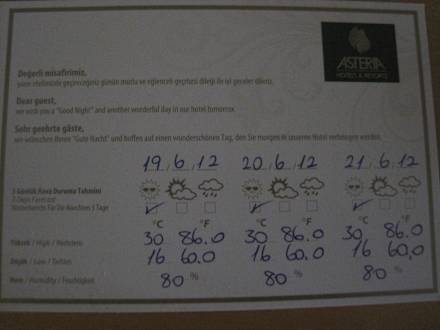 ASTERIA
HOTELS & RESORTS
Değerli misafirimiz,
yarın otelimizde geçireceğiniz günün mutlu ve eğlenceli geçmesi dileği ile iyi geceler dileriz.
Dear guest,
we wish you a "Good Night" and another wonderful day in our hotel tomorrow.
Sehr geehrte gäste,
wir wünschen Ihnen "Gute Nacht" und hoffen auf einen wunderschönen Tag, den Sie morgen in unserem Hotel verbringen werden.
19.6.12 20.6.12 21.6.12
3 Günlük Hava Durumu Tahmini
3 Days Forecast
Wetterbericht Für Die Nächsten 3 Tage
°C °F °C °F °C °F
Yüksek / High / Höchstens 30 86.0 30 86.0 30 86.0
Düşük / Low / Tiefsten 16 60.0 16 60.0 16 60,0
Nem / Humidity / Feuchtigkeit 80 % 80 % 80 %